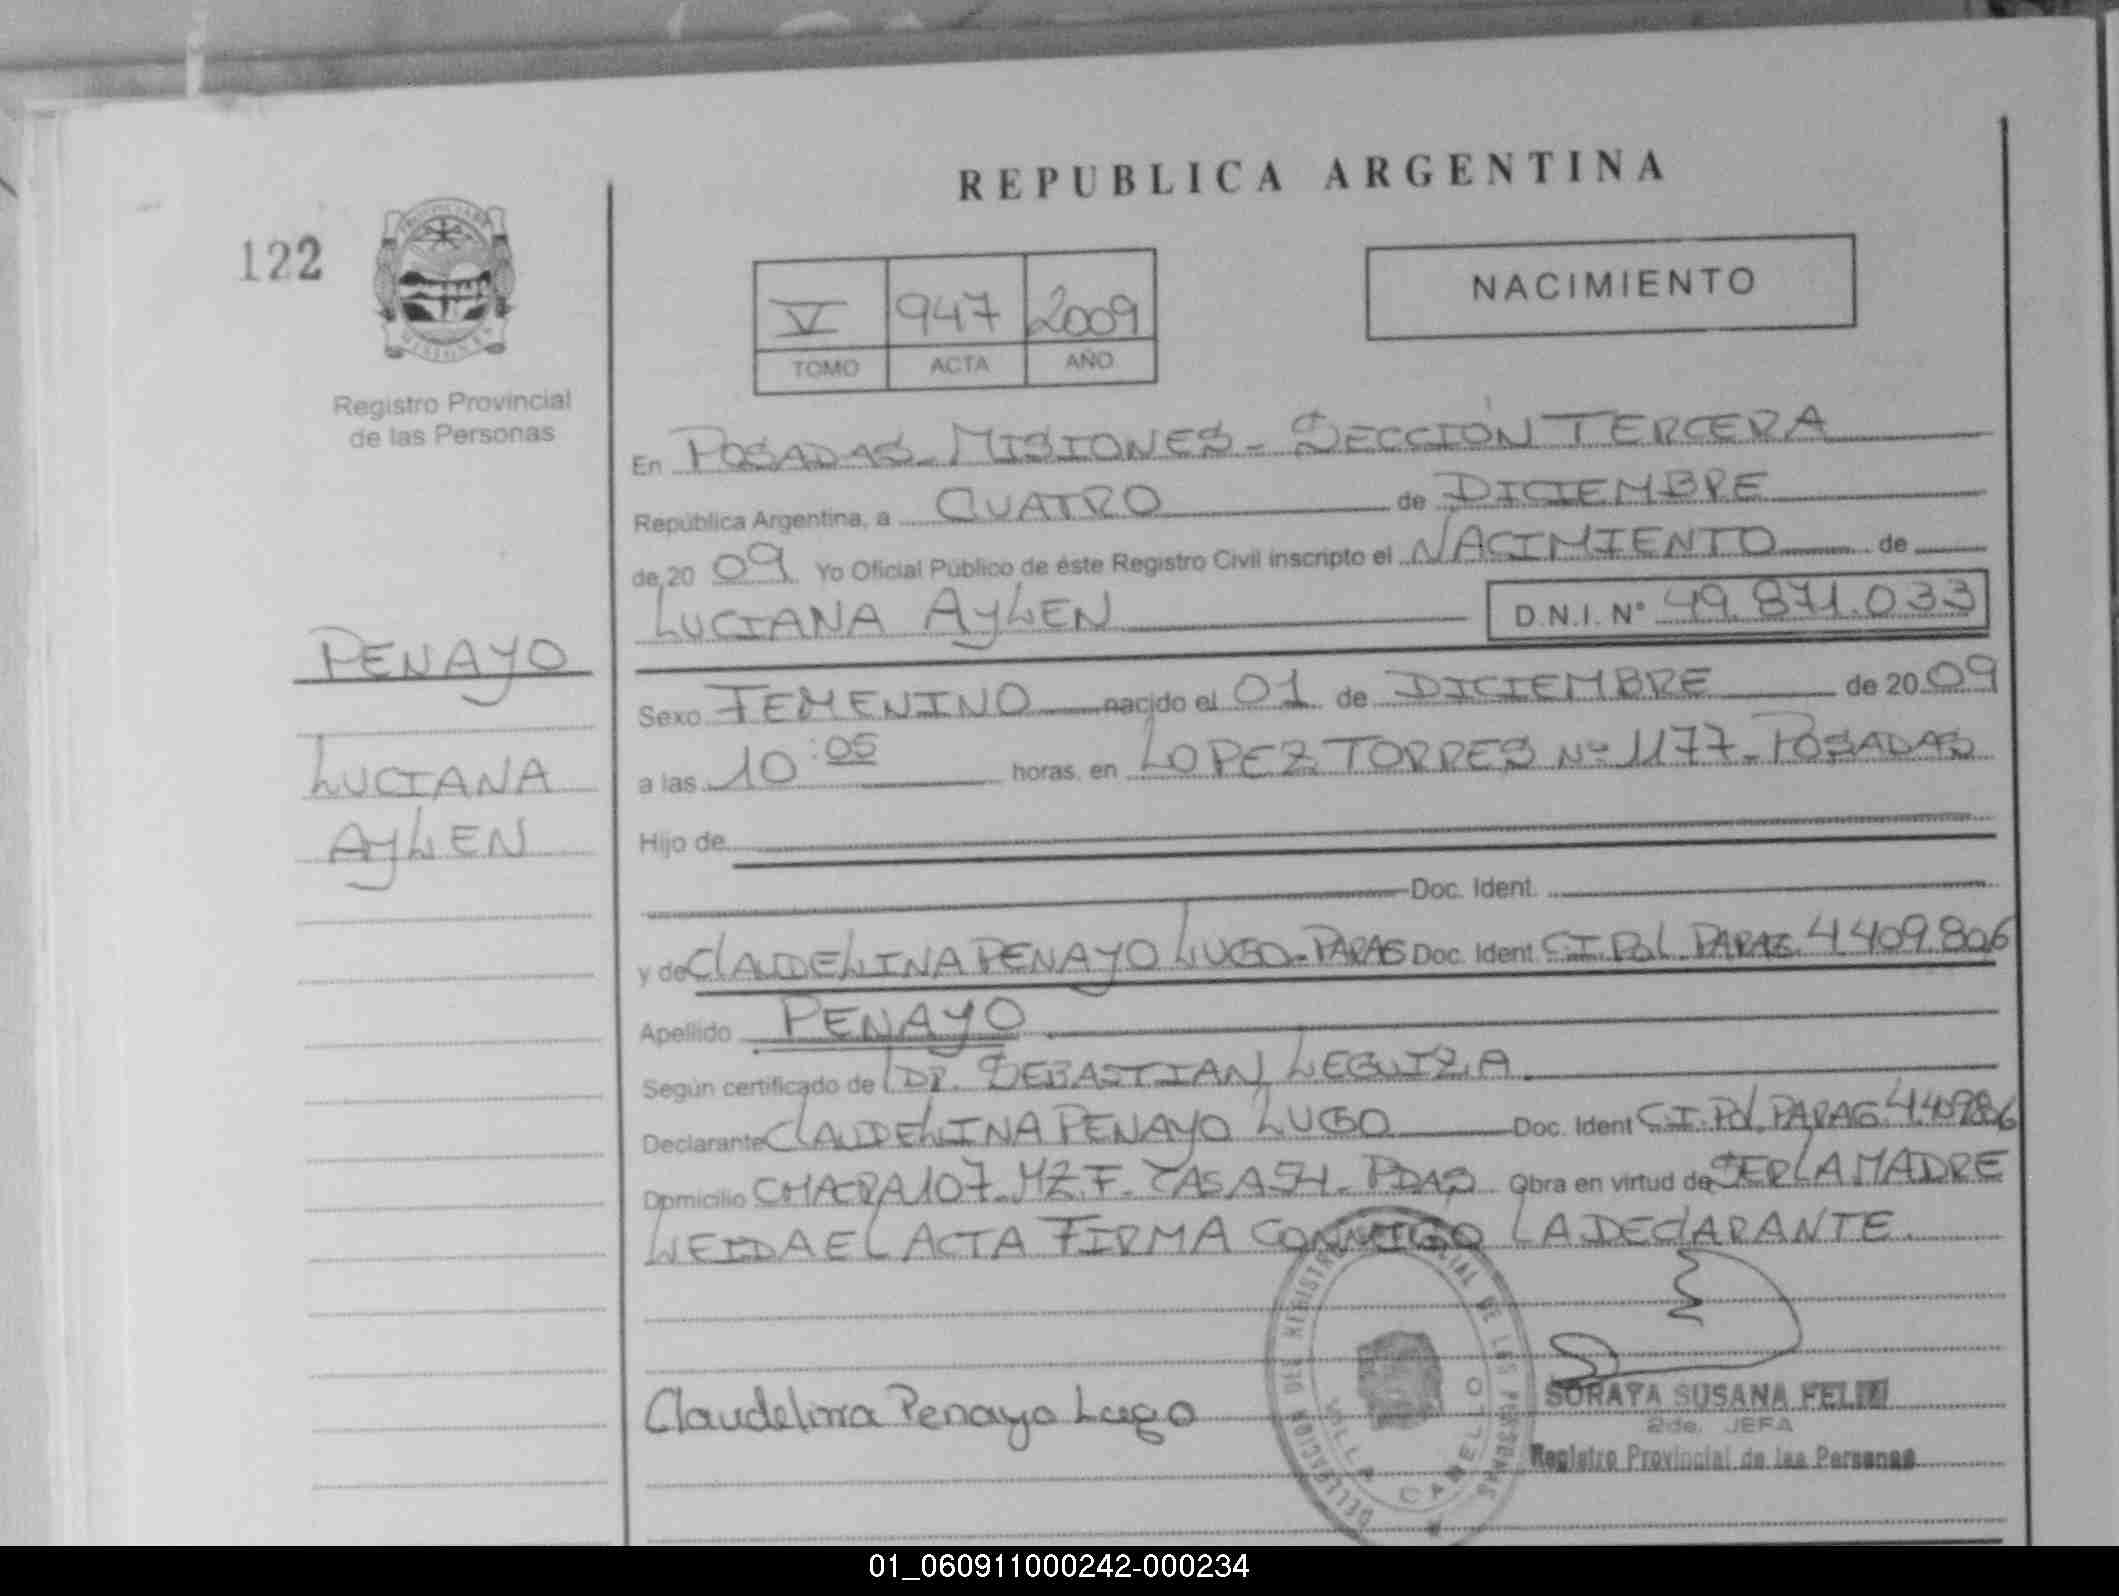 REPUBLICA ARGENTINA
122
NACIMIENTO
V 947 2009
TOMO ACTA AÑO
Registro Provincial
de las Personas
En POSADAS - MISIONES - SECCIÓN TERCERA
República Argentina, a CUATRO de DICIEMBRE
de 20 09 Yo Oficial Público de éste Registro Civil inscripto el NACIMIENTO de
LUCIANA AYLEN D.N.I. N° 49.871.033
PENAYO
LUCIANA
AYLEN
Sexo FEMENINO nacido el 01 de DICIEMBRE de 20 09
a las 10:05 horas, en LOPEZ TORRES Nº 1177 - POSADAS
Hijo de
Doc. Ident.
y de CLAUDELINA PENAYO LUGO - PARAG Doc. Ident C.I. POL. PARAG. 4409.806
Apellido PENAYO
Según certificado de DR. SEBASTIAN LEGUIZA
Declarante CLAUDELINA PENAYO LUGO Doc. Ident C.I. POL. PARAG. 4.409806
Domicilio CHACRA 107 - MZ. F - CASA 54 - PDAS Obra en virtud de SER LA MADRE
LEIDA EL ACTA FIRMA CONMIGO LA DECLARANTE
Claudelina Penayo Lugo
DELEGACION DEL REGISTRO PROVINCIAL DE LAS PERSONAS
VILLA CABELLO
SORAYA SUSANA
2da. JEFA
Registro Provincial de las Personas
01_060911000242-000234